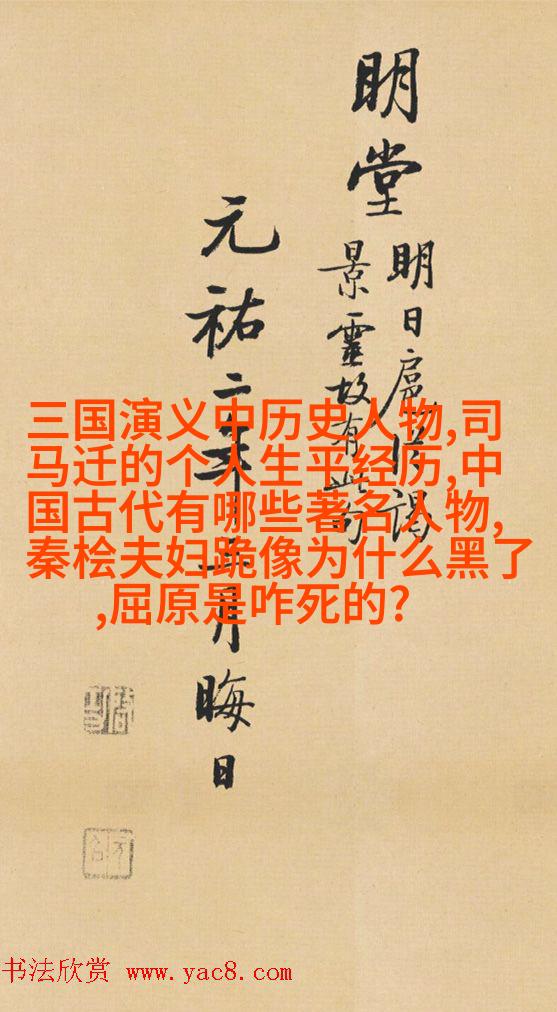 明堂
明日扈從謁
景靈故有此句
元祐二年 五月晦日
三国演义中历史人物,司
马迁的个人生平经历,中
国古代有哪些著名人物,
秦桧夫妇跪像为什么黑了
,屈原是咋死的?
书法欣赏 www.yac8.com